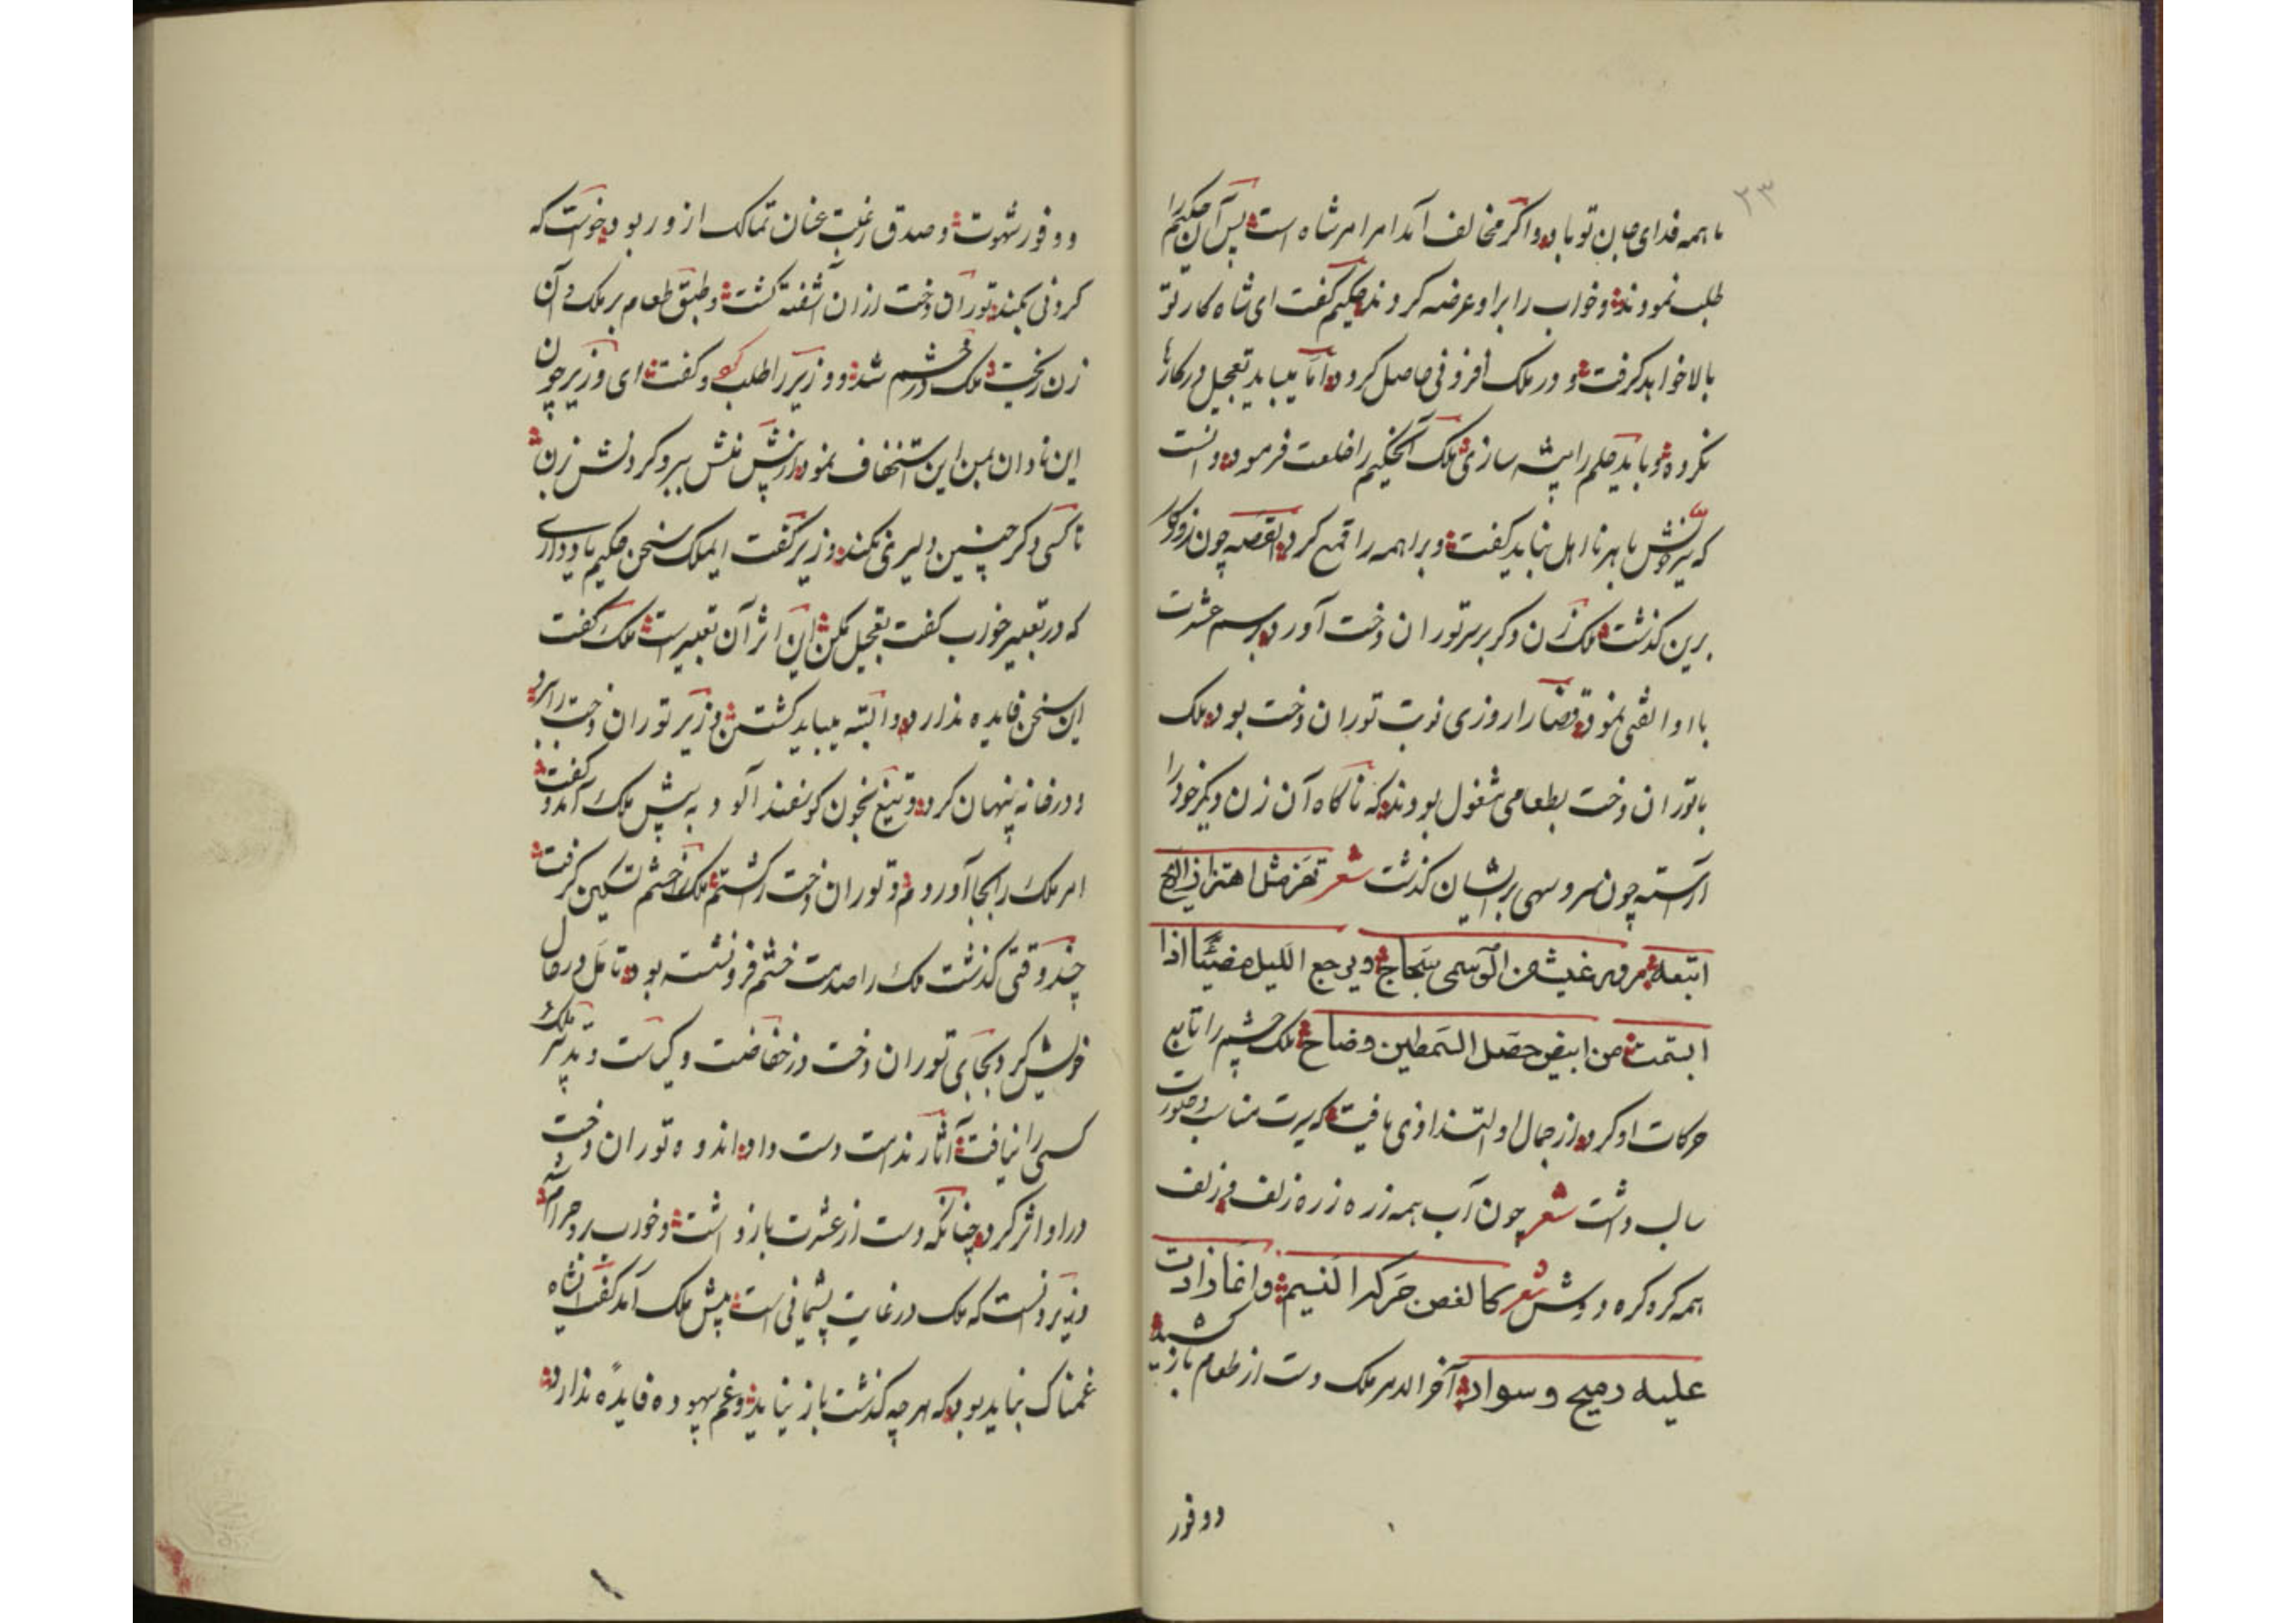 ۲۳
ما همه فدای جان تو باد و اگر مخالف آمد امر امر شاه است پس آن حکیم را
طلب نمودند و خواب را برا و عرضه کردند حکیم گفت ای شاه کار تو
بالا خواهد گرفت و در ملک افزونی حاصل کردد اما میباید تعجیل در کارها
نکرده و باید حلم را پیشه سازی ملک آنحکیم را خلعت فرمود و دانست
که با هر نا اهل نباید گفت و براهمه را قمع کرد القصه چون روزکار
برین کذشت ملک زن دکر بر سر توران دخت آورد برسم عشرت
با او الفتی نمود قضا را روزی نوبت توران دخت بود ملک
با توران دخت بطعامی مشغول بودند که ناکاه آن زن دیکر خود را
آراسته چون سرو سهی بر ایشان کذشت شعر تهز مثل اهتزاز
اتبعه مرور غیث من الوسمی سجاج ویرجع اللیل مضیئا اذا
ابتمت من ابیض السمطین وضاح ملک چشم را تابع
حرکات او کرد از جمال او التذاذی یافت که سیرت مناسب و صورت
سالب داشت شعر چون آب همه زره زره زلف و زلف
همه کره کره دوش شعر کالغصن حرکه النسیم واغا ذادت
علیه دمیح وسواد آخر الامر ملک دست از طعام باز کشید
دوفور
و وفور شهوت و صدق رغبت عنان تمالک از و ربود خواست که
کردنی بکند توران دخت ازان آشفته کشت و طبق طعام بر ملک و آن
زن ریخت ملک در خشم شد و وزیر را طلب کرد و کفت ای وزیر چون
این نادان بمن این استخفاف نمود از پیش منش ببر و کردنش زن
تا کسی دکر چنین دلیری نکند وزیر کفت ایملک سخن حکیم یاد داری
که در تعبیر خواب کفت تعجیل مکن این اثر آن تعبیر است ملک کفت
این سخن فایده ندارد و البته میباید کشتن وزیر توران دخت را برد
و در خانه پنهان کرد و تیغ بخون کوسفند آلود به پیش ملک آمد و کفت
امر ملک را بجا آوردم و توران دخت را کشتم ملک را خشم تسکین کرفت
چند وقتی کذشت ملک را حدت خشم فرو نشسته بود تامل در حال
خویش کرد بجای توران دخت در حفاضت و کیاست و تدبیر ملک
کسی را نیافت آثار ندامت دست داد اندوه توران دخت
در او اثر کرد چنانکه دست از عشرت باز داشت و خواب برو حرام شد
وزیر دانست که ملک در غایت پشیمانی است پیش ملک آمد کفت ایشاه
غمناک نباید بود که هرچه کذشت باز نیاید و غم بیهوده فایده ندارد